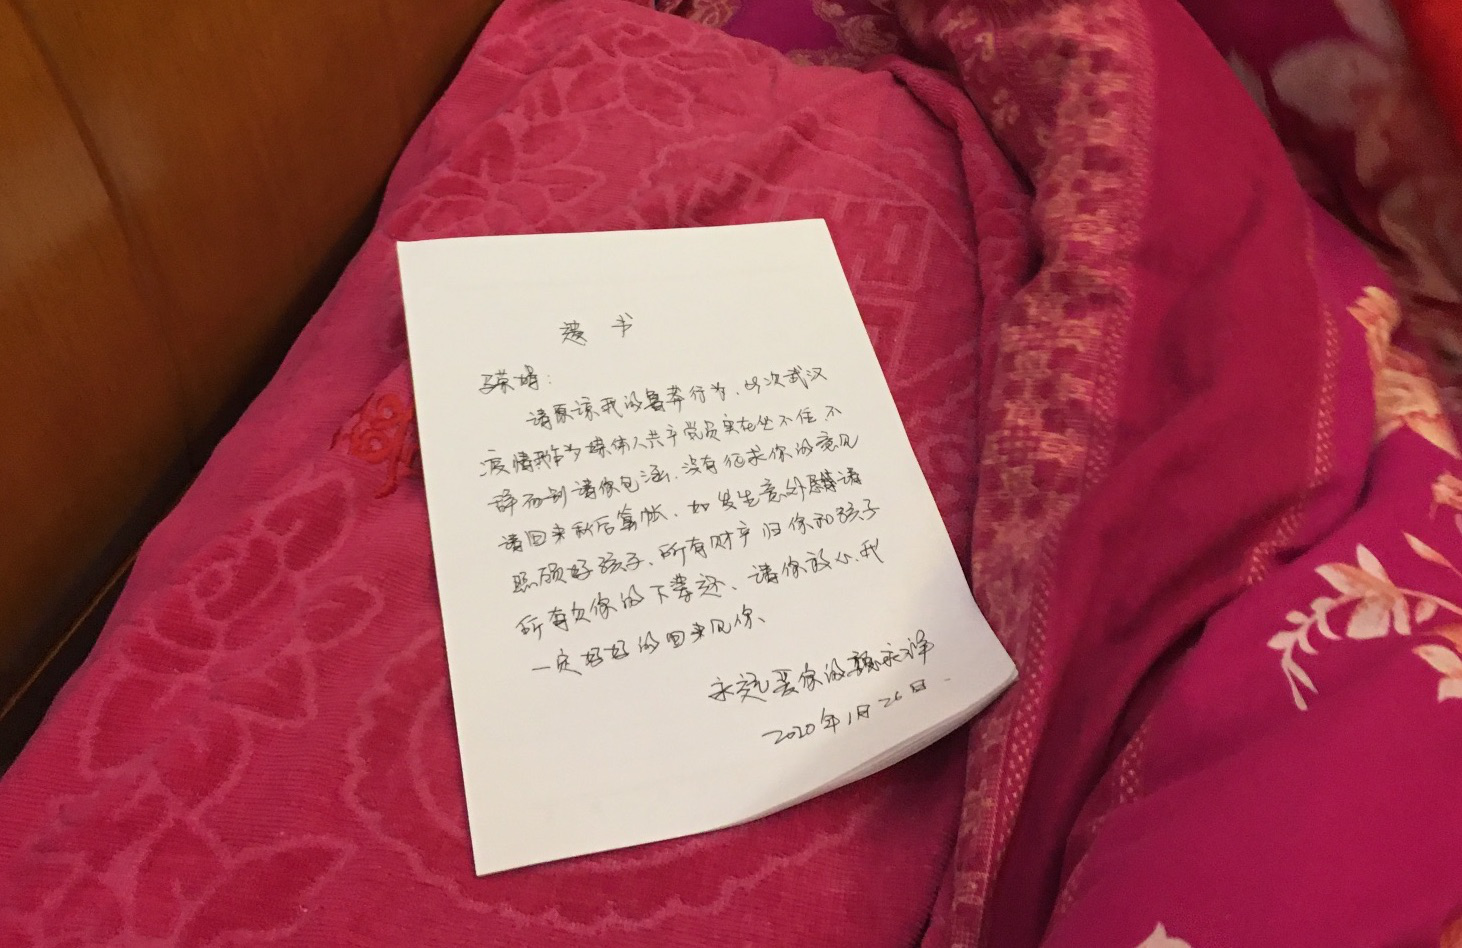 遗书
荣婷：
请原谅我的鲁莽行为、此次武汉
疫情我作为媒体人共产党员实在坐不住、不
辞而别请你包涵、没有征求你的意见
请回来秋后算帐、如发生意外请
照顾好孩子、所有财产归你和孩子
所有欠你的下辈还、请你放心、我
一定好好的回来见你、
永远爱你的永
2020年1月26日.